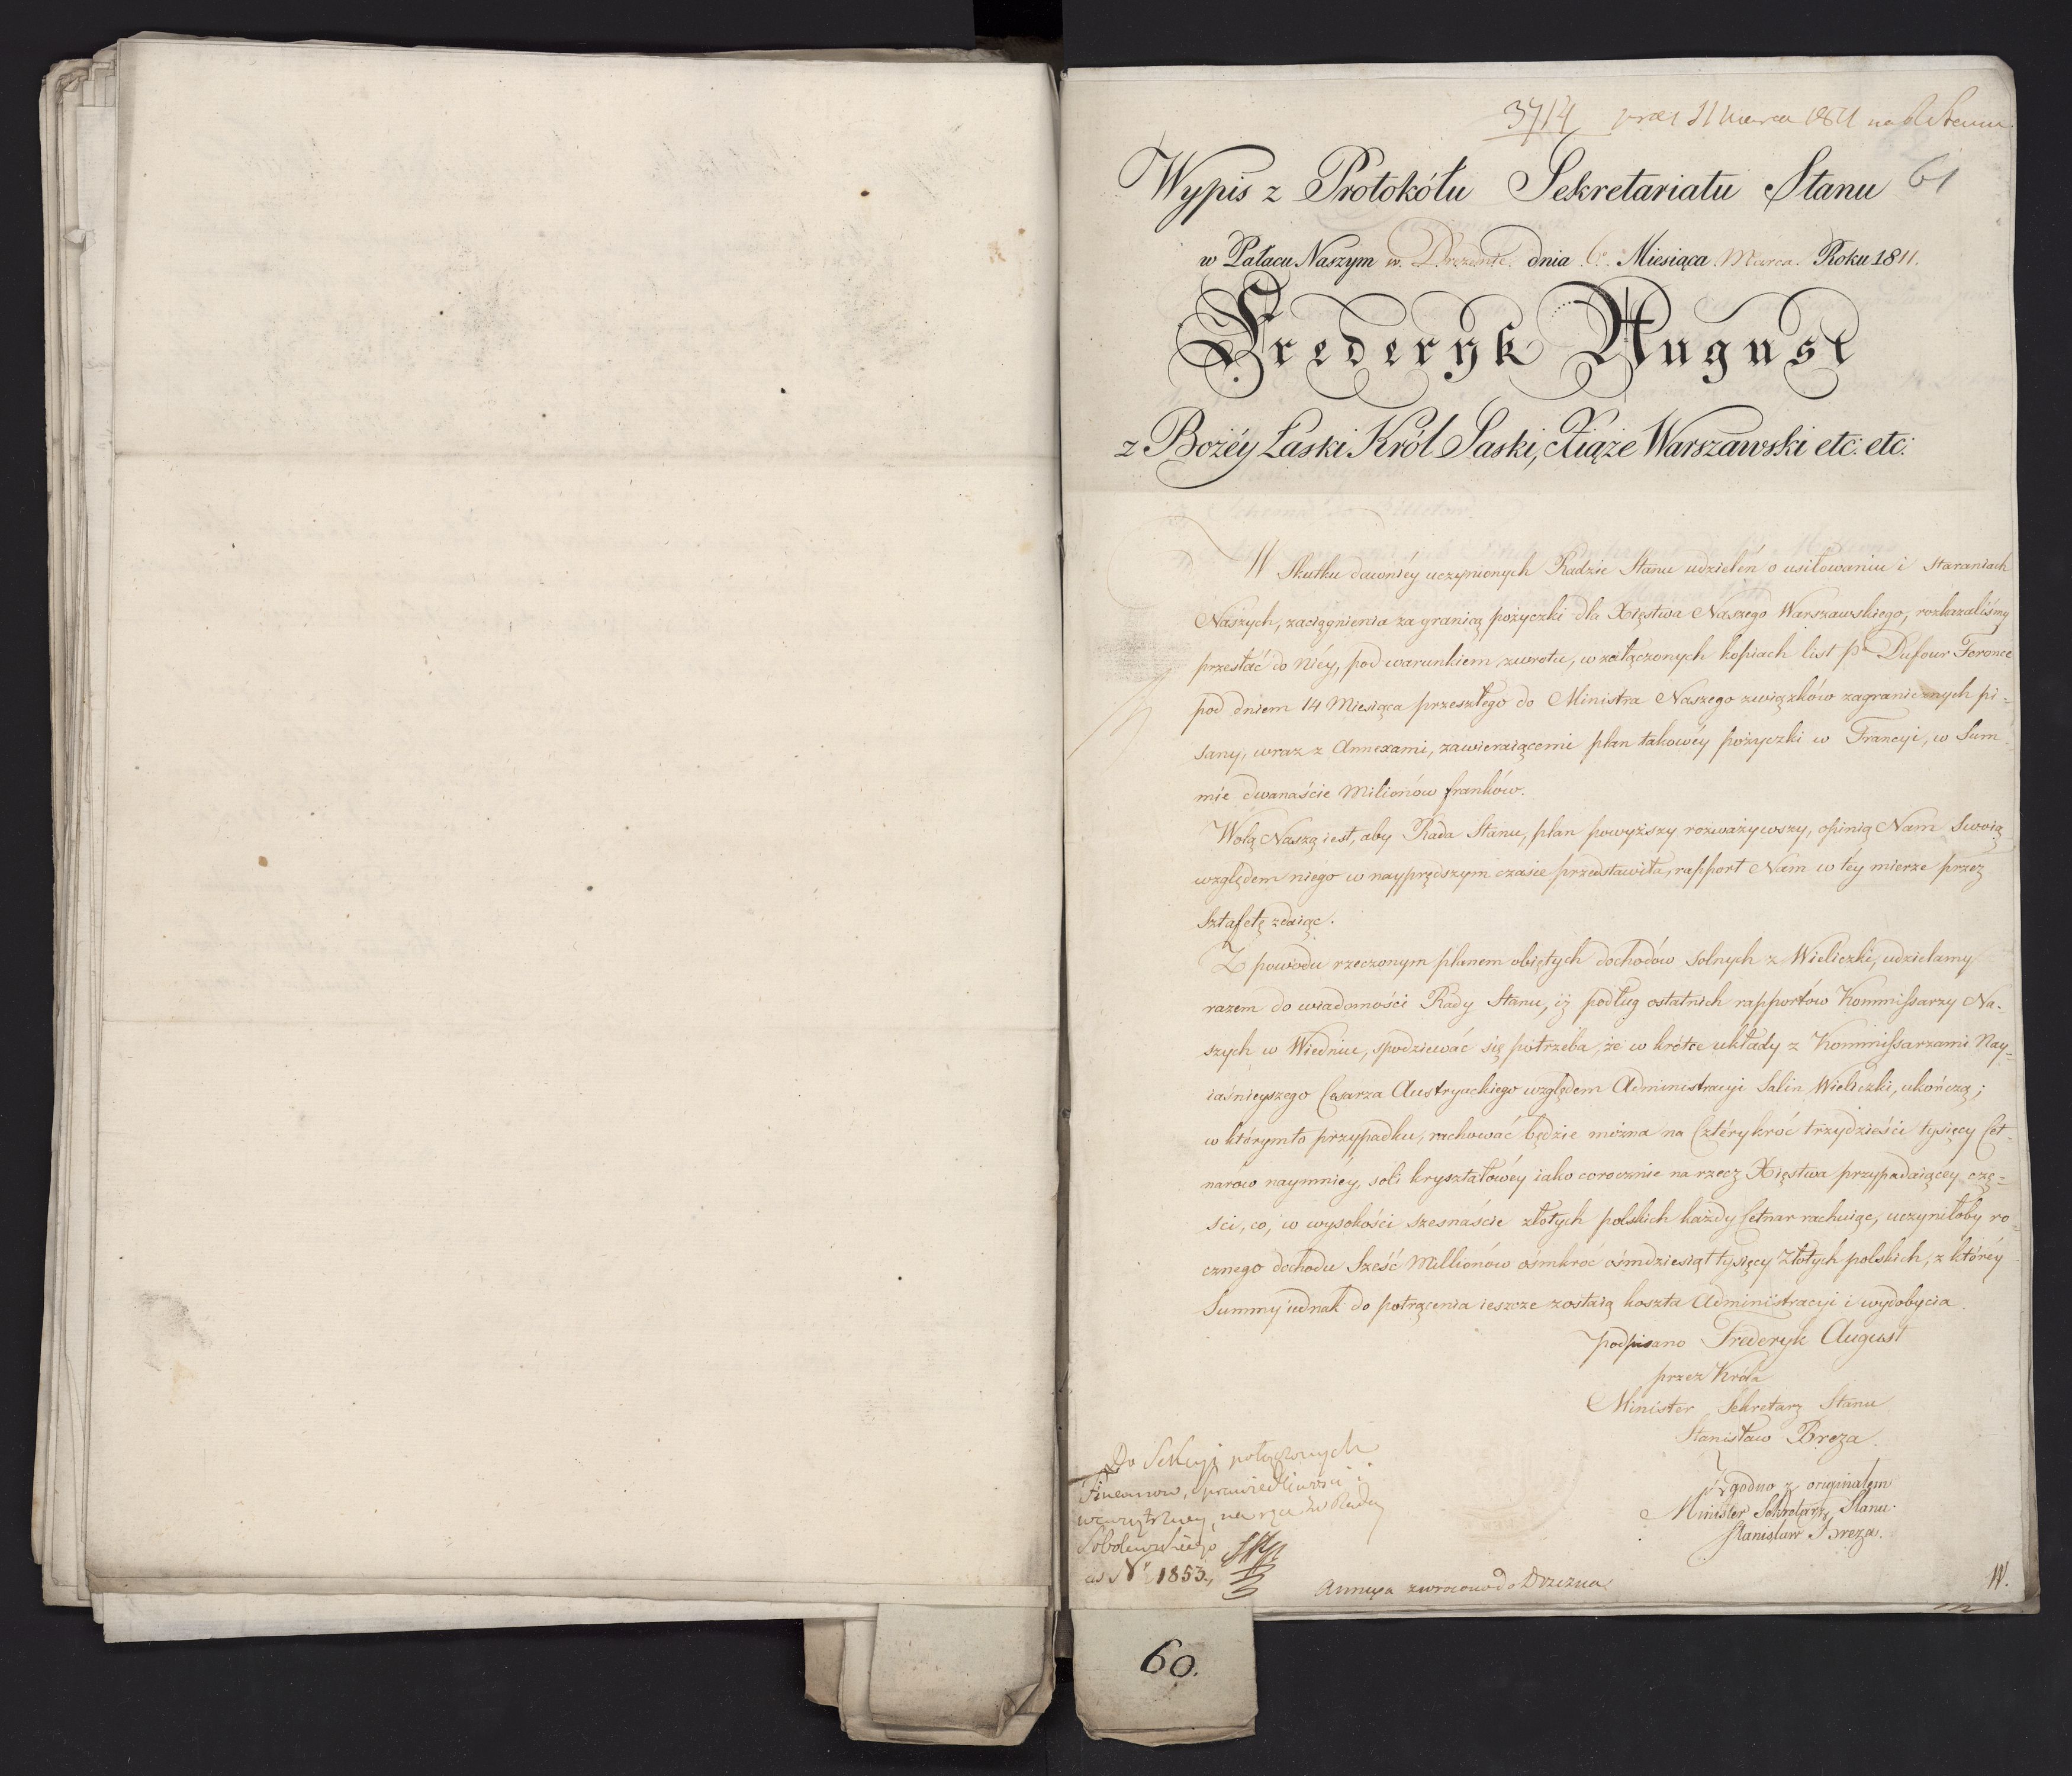 3714 11 Marca 1811 na R. Stanu
61
Wypis z Protokółu Sekretariatu Stanu
w Pałacu Naszym w Dreznie dnia 6º Miesiąca Marca Roku 1811.
Frederyk August
z Bożéy Łaski Król Saski, Xiąże Warszawski etc: etc:
W Skutku dawniéy uczynionych Radzie Stanu udzieleń o usiłowaniu i Staraniach
Naszych, zaciągnienia za granicą pożyczki dla Xięstwa Naszego Warszawskiego, rozkazaliśmy
przesłać do niéy, pod warunkiem zwrotu, w załączonych kopiach list Pª Dufour Feronce
pod dniem 14 Miesiąca przeszłego do Ministra Naszego związków zagranicznych pi-
sany, wraz z Annexami, zawieraiącemi plan takowéy pożyczki w Francyi, w Sum-
mie dwanaście Milionów franków.
Wolą Naszą iest, aby Rada Stanu, plan powyższy rozważywszy, opinią Nam Swoią
względem niego w nayprędszym czasie przedstawiła, rapport Nam w téy mierze przez
Sztafetę zdaiąc.
Z powodu rzeczonym planem obiętych dochodów Solnych z Wieliczki, udzielamy
razem do wiadomości Rady Stanu, iż podług ostatnich rapportów Kommissarzy Na-
szych w Wiedniu, spodziewać się potrzeba, że w krótce układy z Kommissarzami Nay-
iaśnieyszego Cesarza Austryackiego względem Administracyi Salin Wieliczki, ukończą;
w którymto przypadku, rachować będzie można na Cztérykroć trzydzieści tysięcy Cet-
narów naymniéy, soli kryształowéy iako corocznie na rzecz Xięstwa przypadaiącéy czę-
ści, co, w wysokości szesnaście złotych polskich każdy Cetnar rachuiąc, uczyniłoby ro-
cznego dochodu Sześć Millionów ośmkroć ośmdziesiąt tysięcy Złotych polskich, z któréy
Summy iednak do potrącenia ieszcze zostaią koszta Administracyi i wydobycia.
podpisano Frederyk August
przez Króla
Minister Sekretarz Stanu
Stanisław Breza.
Zgodno z originałem
Minister Sekretarz Stanu.
Stanisław Breza.
Do Sekcyi połączonych
Finansow, sprawiedliwości i
wewnętrzney, na ręce Radcy
Sobolewskiego
ad Nr 1853.
Annexa zwrocono do Drezna.
W.
60.